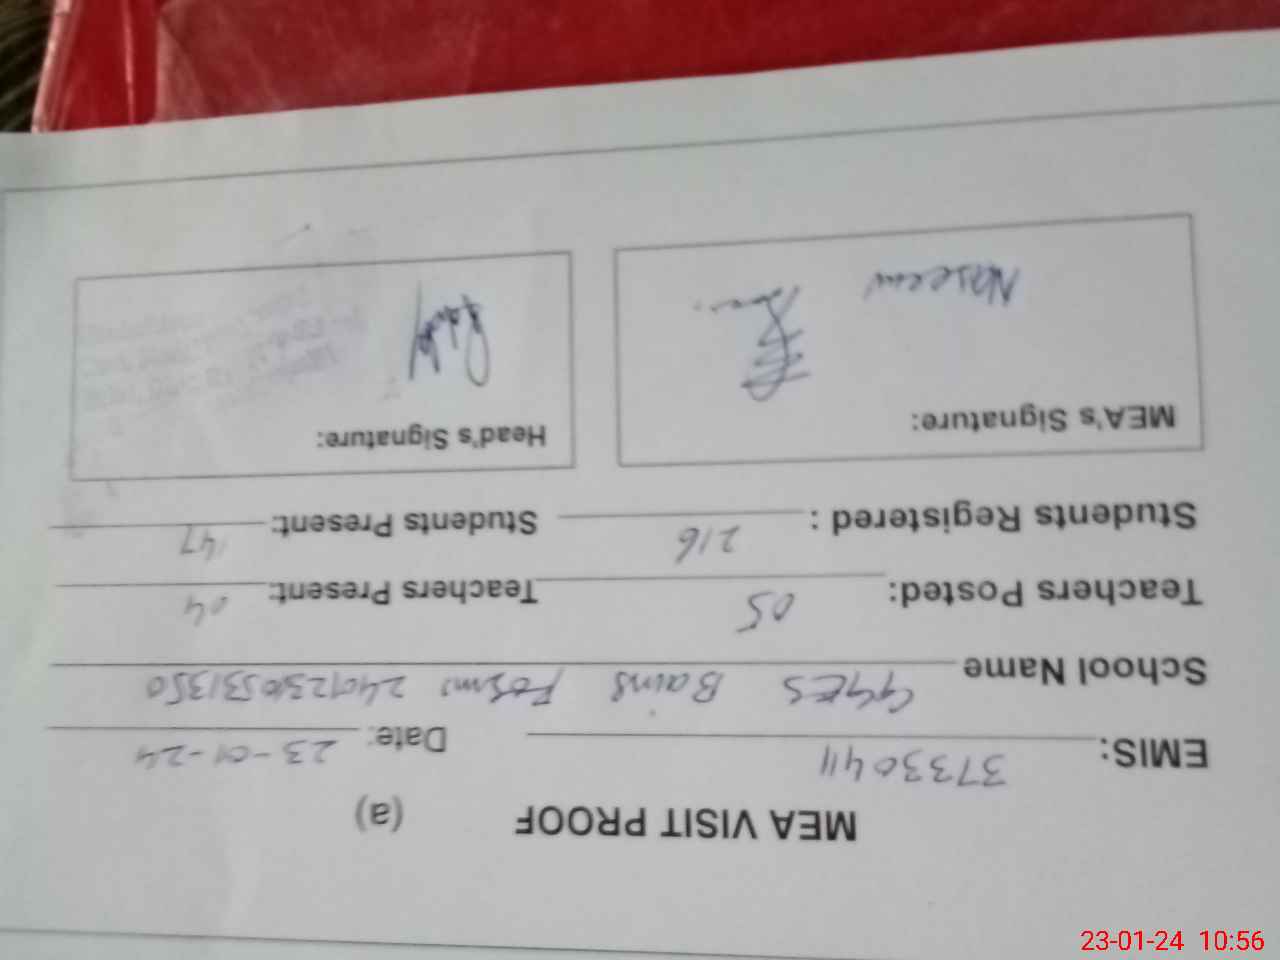 MEA VISIT PROOF (a)
EMIS: 37330411 Date: 23-01-24
School Name GGES Bains Form: 240123105331350
Teachers Posted: 05 Teachers Present: 04
Students Registered : 216 Students Present: 147
MEA's Signature: Head's Signature:
Naseem
23-01-24 10:56